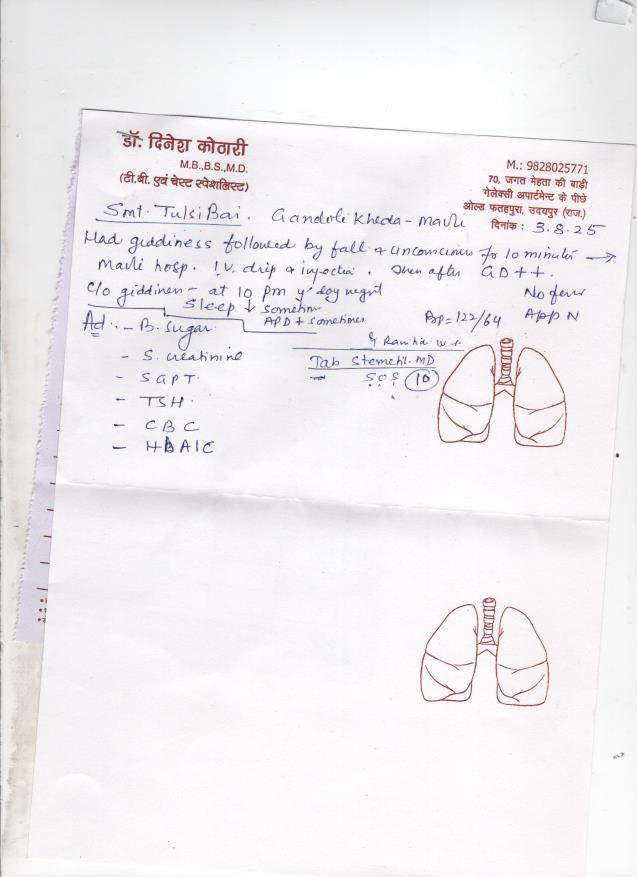 डॉ. दिनेश कोठारी
M.B.,B.S.,M.D.
(टी.बी. एवं चेस्ट स्पेशलिस्ट)
M.: 9828025771
70, जगत मेहता की बाड़ी
गेलेक्सी अपार्टमेन्ट के पीछे
ओल्ड फतहपुरा, उदयपुर (राज.)
दिनांक : 3.8.25
Smt. Tulsi Bai. Gandoli Kheda - Mavli
Had giddiness followed by fall & unconscious for 10 minutes →
Mavli hosp. I.V. drip & injection. then after GD++.
C/o giddiness - at 10 pm
No fever
Sleep ↓ sometimes
App N
APD + sometimes
BP = 122/64
Ad:- - B. Sugar
- S. creatinine
- SGPT.
- TSH.
- CBC
- HBA1C
Tab Stemetil MD
- SOS (10)